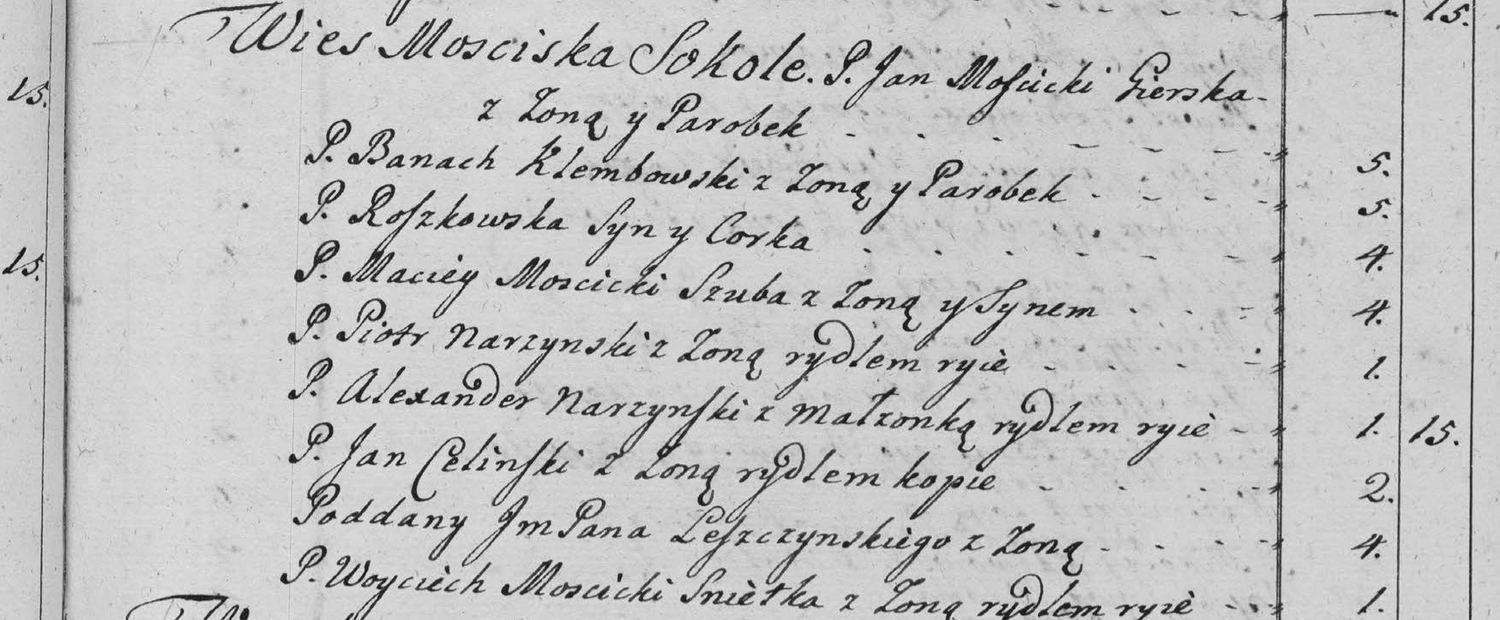 15.
Wies Mosciska Sokole. P. Jan Moscicki Gierska-
z Zoną y Parobek - - - - - " 5.
P. Banach Klembowski z Zoną y Parobek - - - - " 5.
P. Roszkowska Syn y Corka - - - - - " 4.
P. Maciey Moscicki Szuba z Zoną y Synem - - - " 4.
P. Piotr Narzynski z Zoną rydlem ryie - - - - " 1.
P. Alexander Narzynski z Małzonką rydlem ryie - " 1. 15.
P. Jan Celinski z Zoną rydlem kopie - - - " 2.
Poddany Jm Pana Leszczynskiego z Zoną - - - " 4.
P. Woyciech Moscicki Snietka z Zoną rydlem ryie - - " 1.
15.
15.